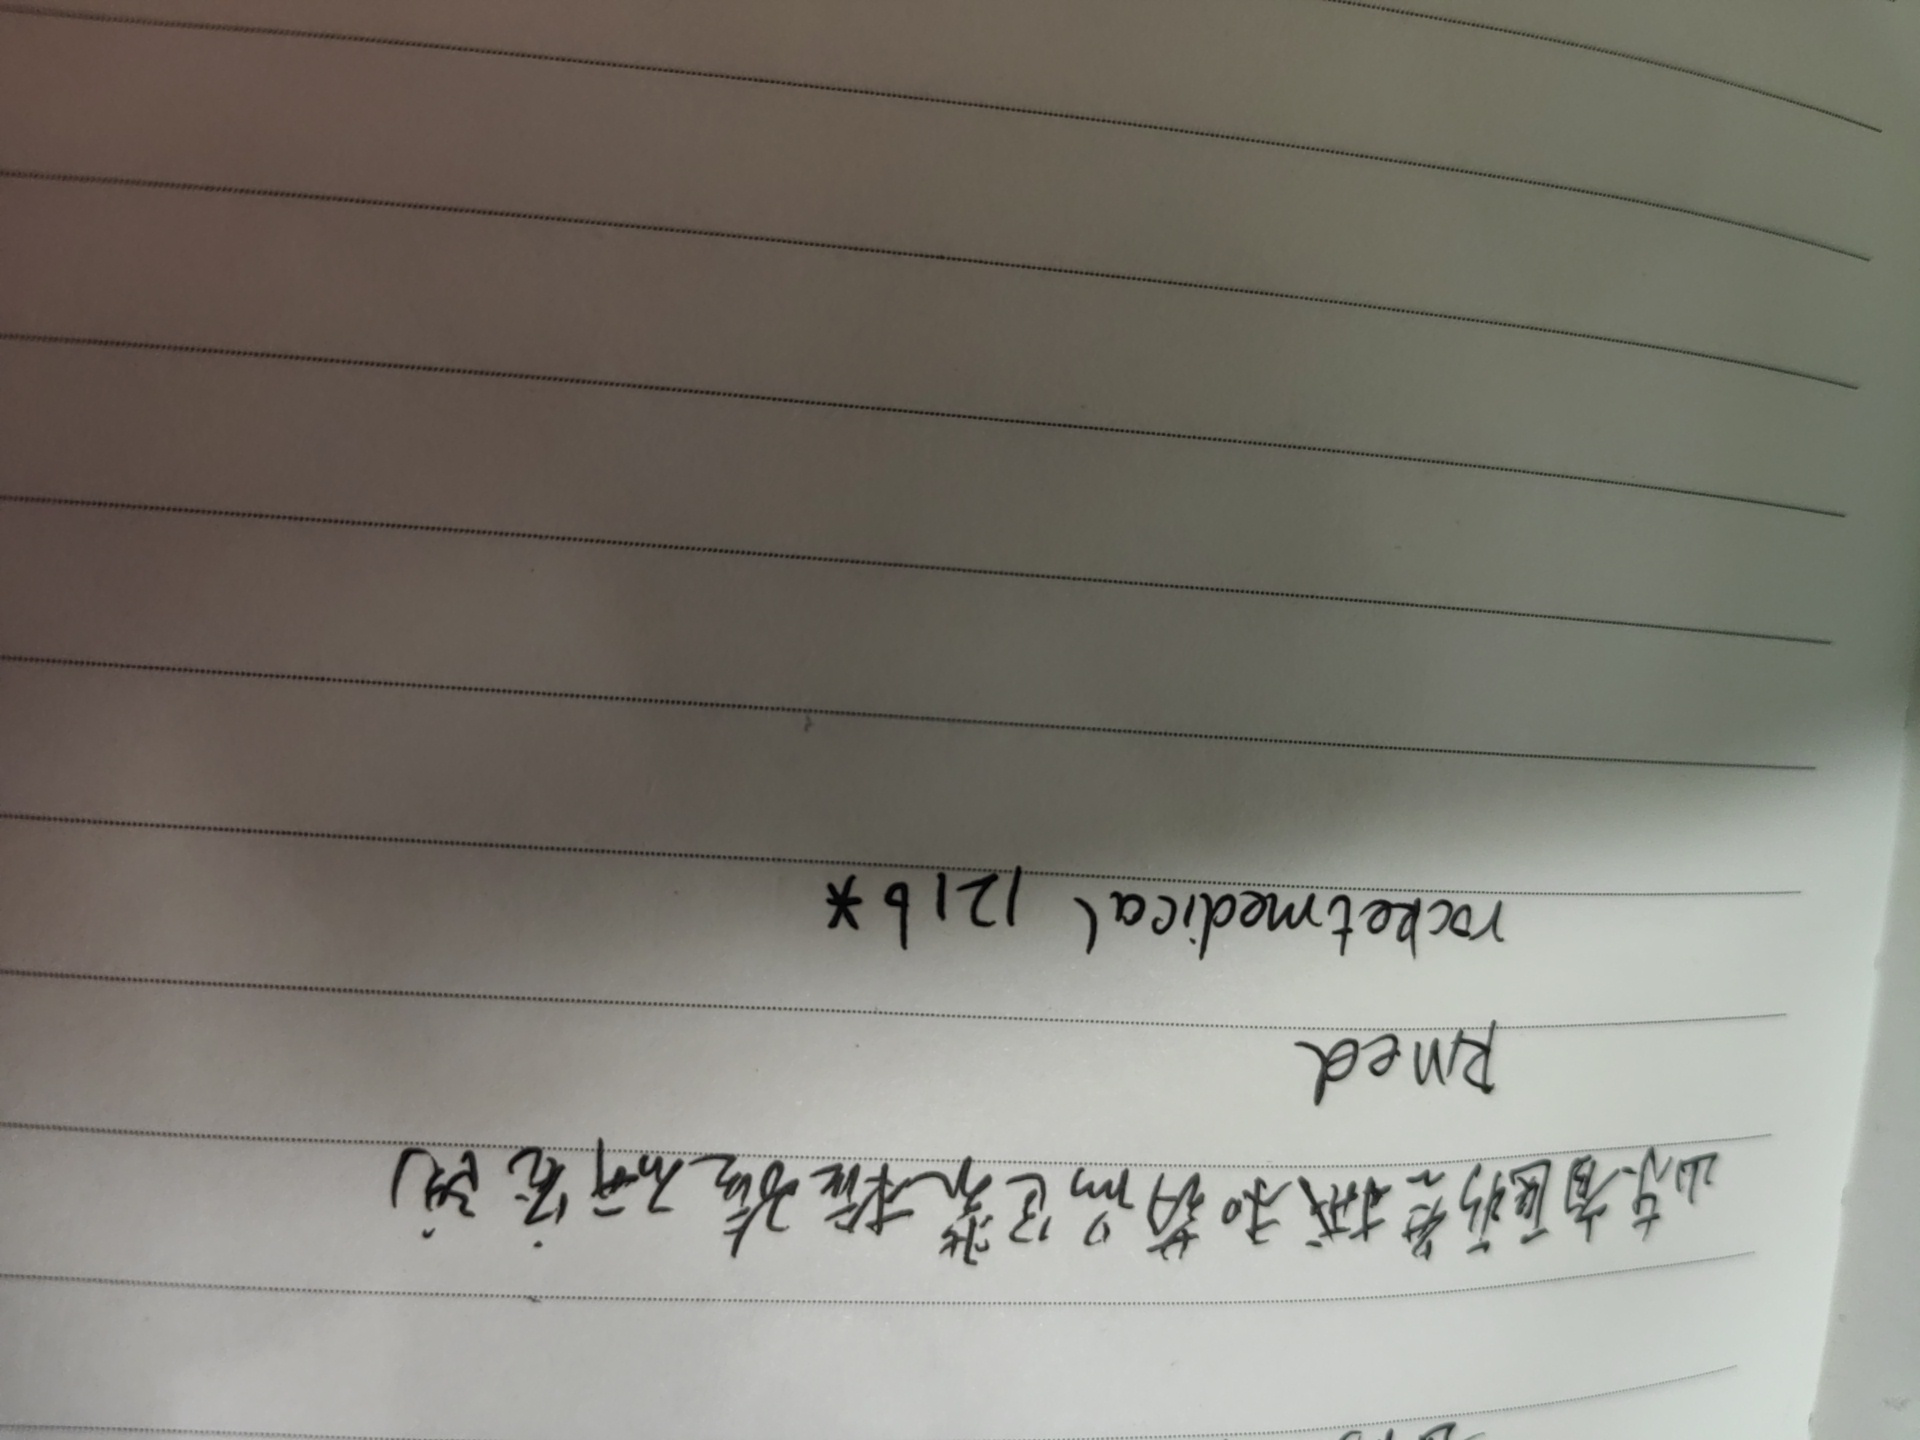 山东省医疗器械和药品包装检验研究院
RMed
rocketmedical 1216*